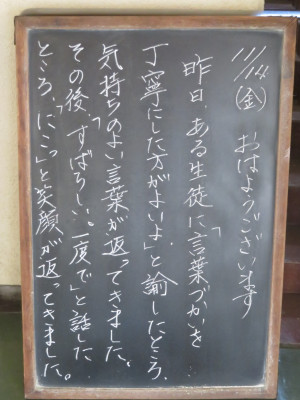 11/14(金) おはようございます
昨日、ある生徒に「言葉づかいを
丁寧にした方がよいよ」と諭したところ、
気持ちのよい言葉が返ってきました。
その後、「すばらしい。一度で」と話した
ところ、「にこっ」と笑顔が返ってきました。